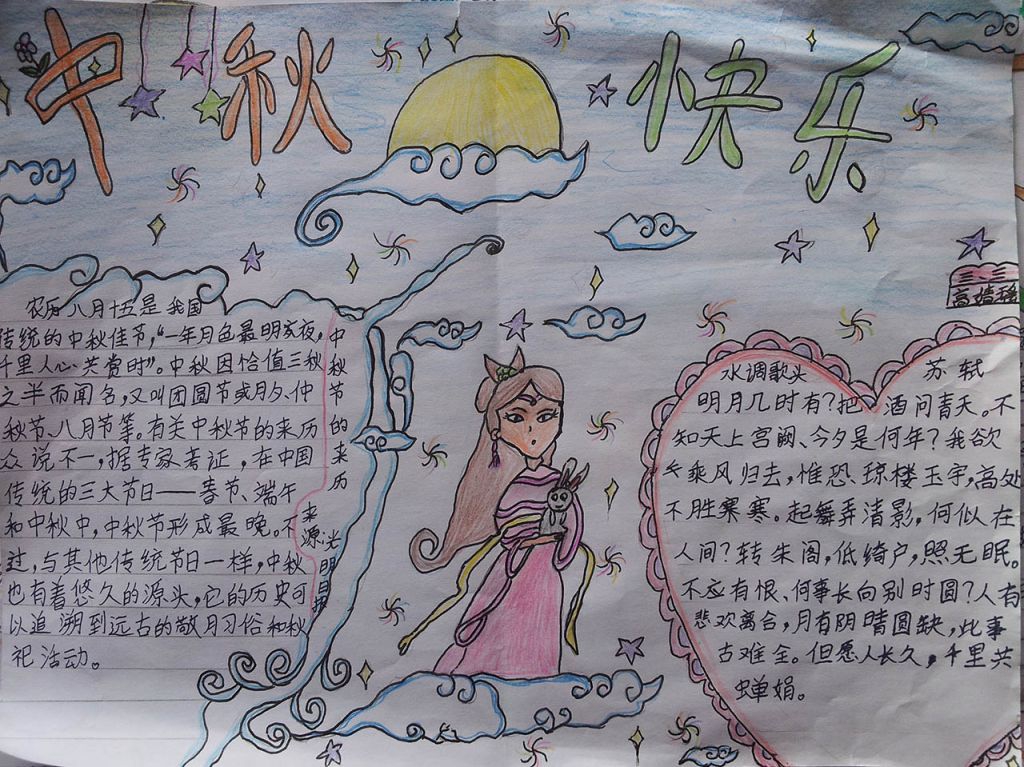 中秋快乐
农历八月十五是我国
传统的中秋佳节,“一年月色最明亥夜,
千里人心共赏时”。中秋因恰值三秋
之半而闻名,又叫团圆节或月夕、仲
秋节、八月节等。有关中秋节的来历
众说不一,据专家考证,在中国
传统的三大节日——春节、端午
和中秋中,中秋节形成最晚。不
过,与其他传统节日一样,中秋
也有着悠久的源头,它的历史可
以追溯到远古的敬月习俗和秋
祀活动。
中秋节的来历
来源光明日报
三、三
水调歌头 苏轼
明月几时有?把酒问青天。不
知天上宫阙、今夕是何年?我欲
乘风归去,惟恐琼楼玉宇,高处
不胜寒。起舞弄清影,何似在
人间?转朱阁,低绮户,照无眠。
不应有恨、何事长向别时圆?人有
悲欢离合,月有阴晴圆缺,此事
古难全。但愿人长久,千里共
蝉娟。